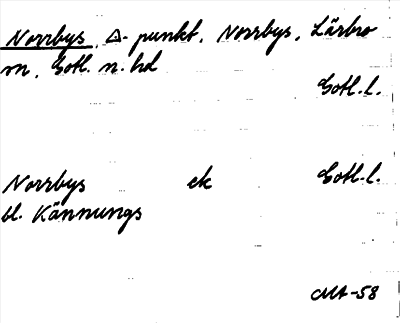 Norrbys, △-punkt, Norrbys, Lärbro
m, Gotl. n. hd
Gotl. l.
Norrbys ek Gotl. l.
bl. Kännungs
MA-58